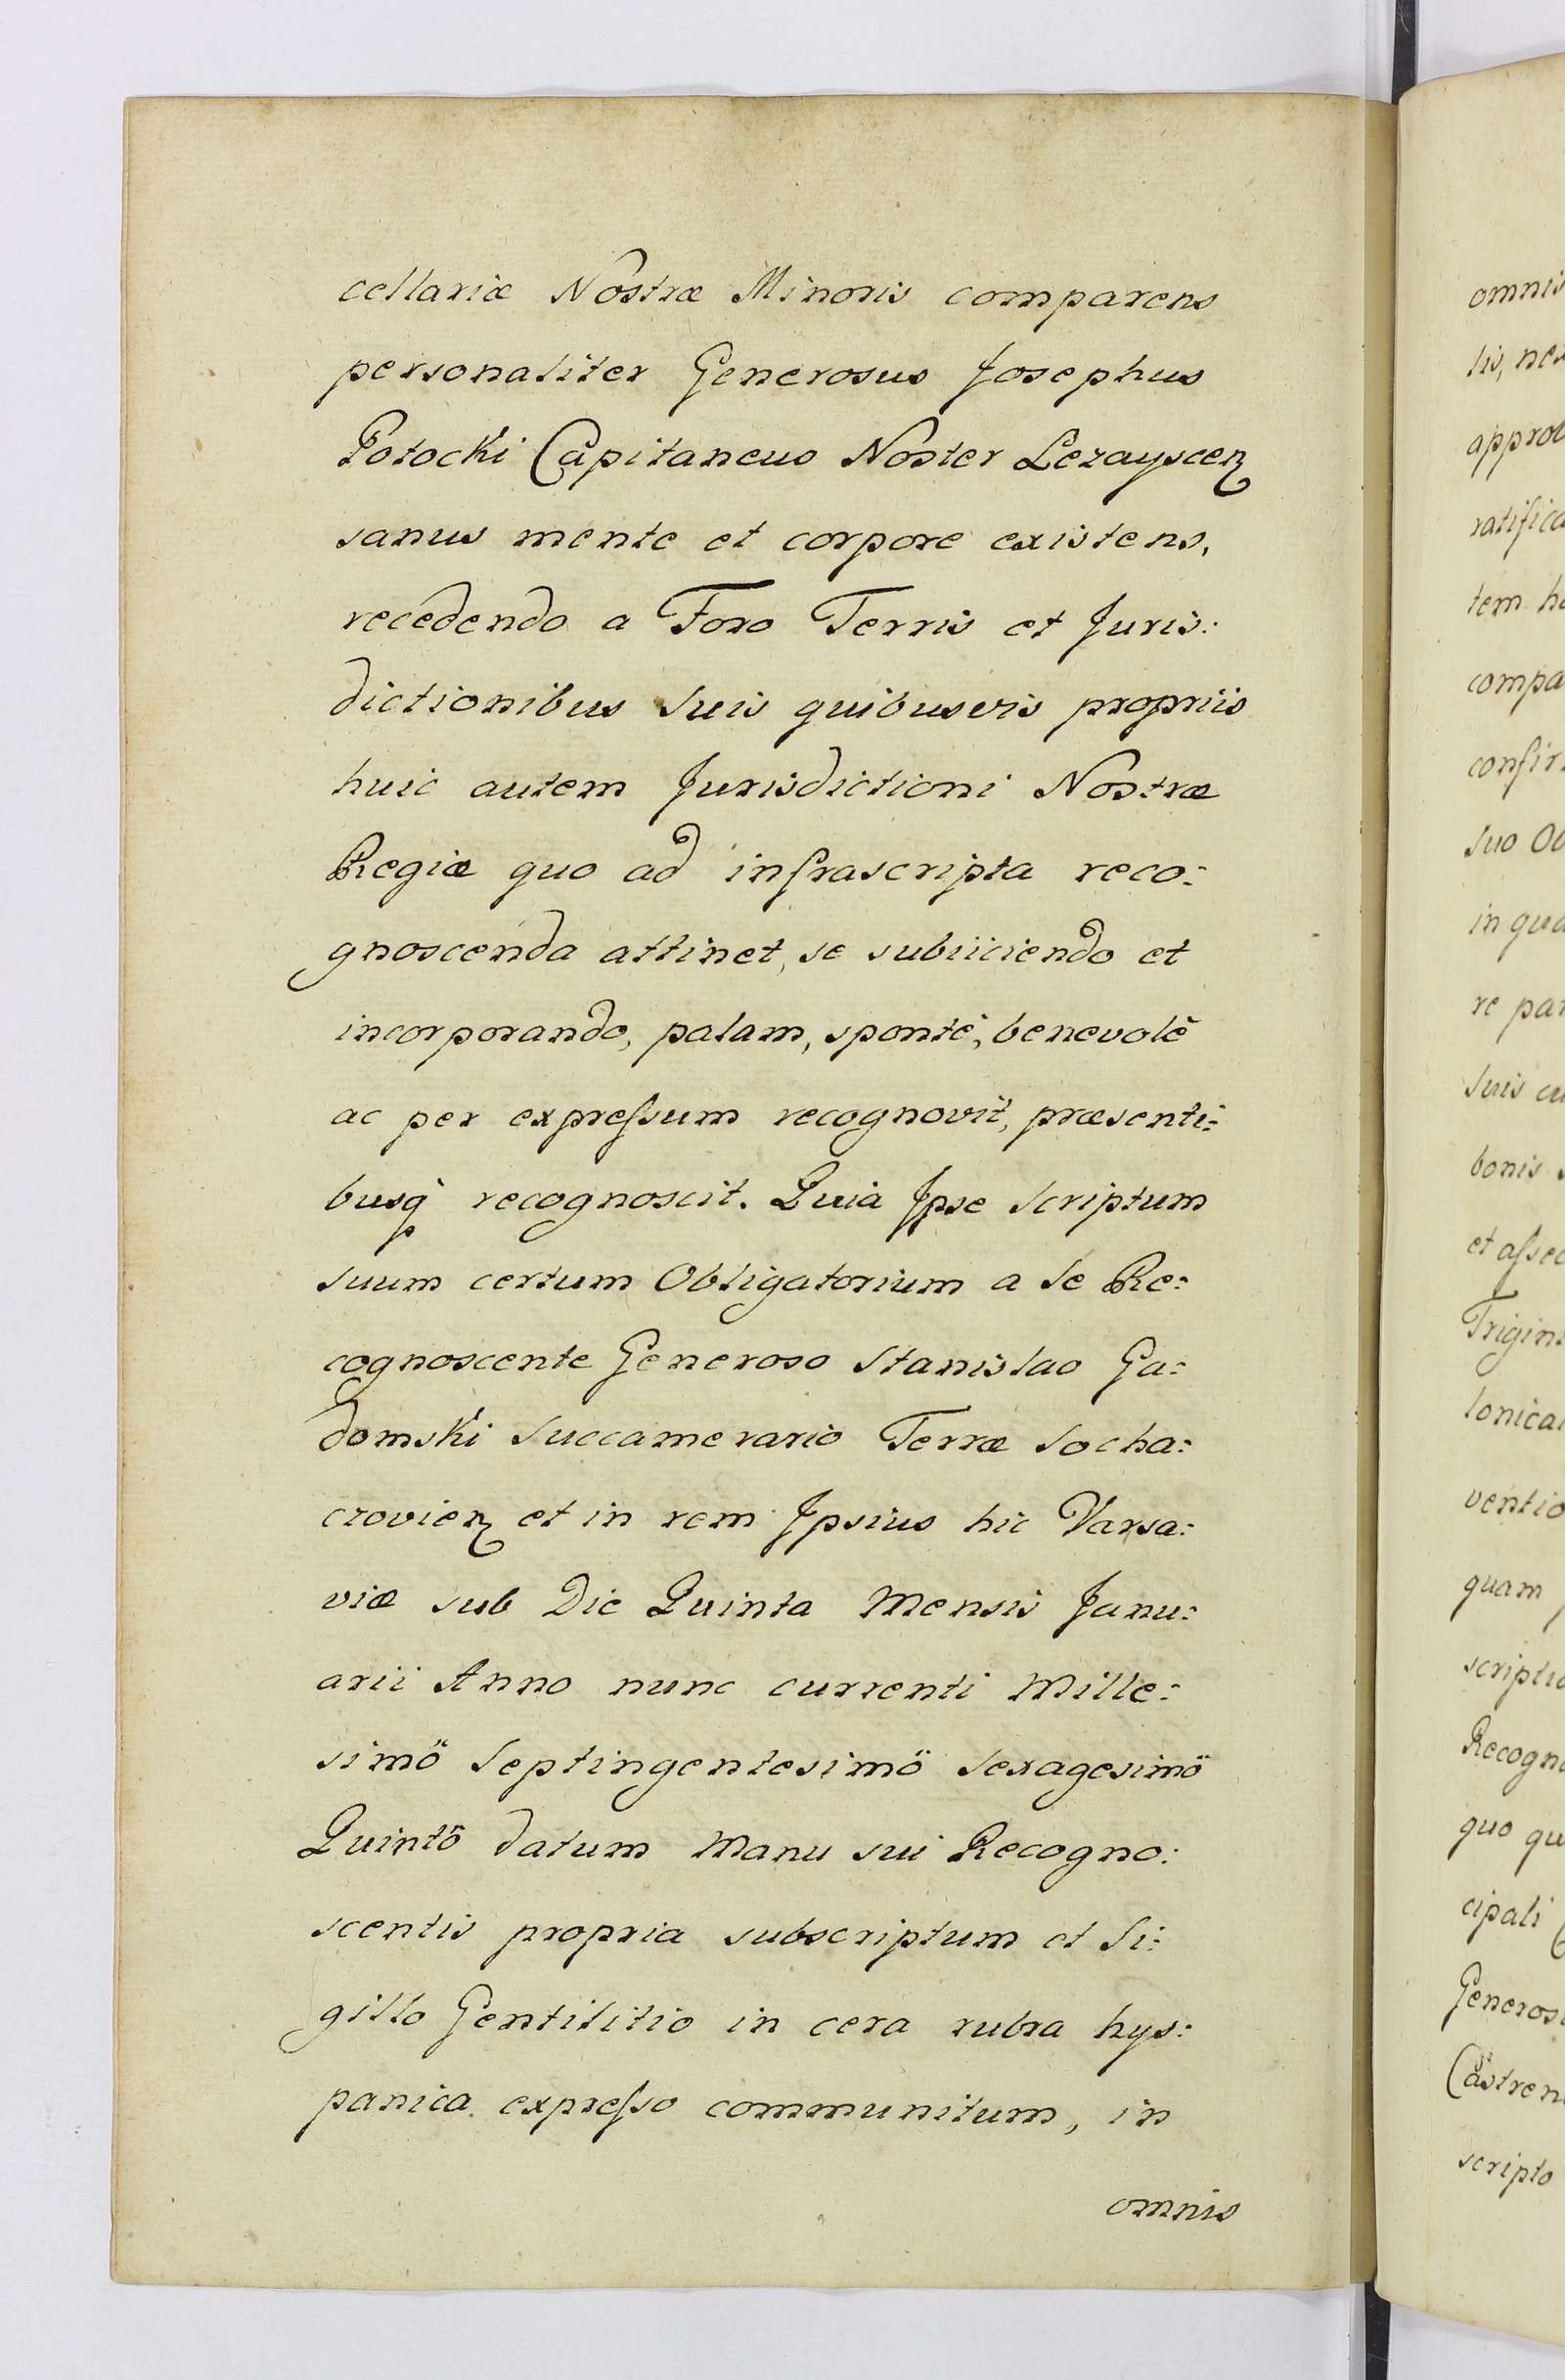 cellariæ Nostræ Minoris comparens
personaliter Generosus Josephus
Potocki Capitaneus Noster Lezayscen
sanus mente et corpore existens,
recedendo a Foro Terris et Juris:
dictionibus suis quibusvis propriis
huic autem Jurisdictioni Nostræ
Regiæ quo ad infrascripta reco:
gnoscenda attinet, se subiiciendo et
incorporando, palam, spontè, benevolè
ac per expreſsum recognovit, præsenti:
busq recognoscit. Quia Ipse Scriptum
suum certum Obligatorium a se Re:
cognoscente Generoso Stanislao Ga:
domski Succamerario Terræ Socha:
czovien et in rem Ipsius hic Varsa:
viæ sub Die Quinta Mensis Janu:
arii Anno nunc currenti Mille:
simö Septingentesimö Sexagesimö
Quintö datum Manu sui Recogno:
scentis propria subscriptum et Si:
gillo Gentilitio in cera rubra hys:
panica expreſso communitum, in
omnis
omnis
lis, nex
approb
ratifica
tem ha
compa
confir:
suo Ob
in qua
re par
suis cu
bonis s
et aſsec
Trigin:
lonica
ventio
quam p
scriptu
Recogn
quo qu
cipali
Generos
Castren
scripto